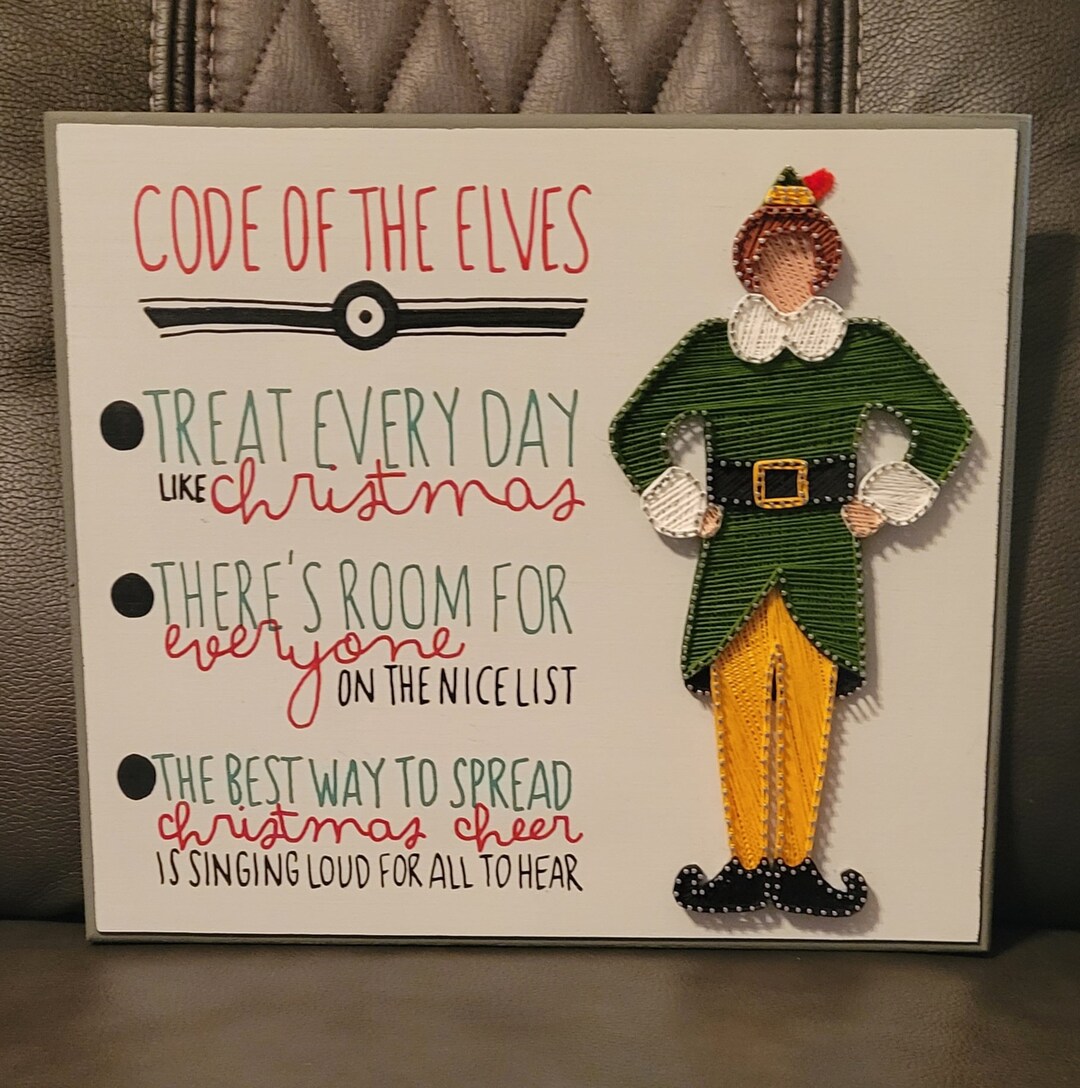 CODE OF THE ELVES
TREAT EVERY DAY
LIKE christmas
THERE'S ROOM FOR
everyone
ON THE NICE LIST
THE BEST WAY TO SPREAD
christmas cheer
IS SINGING LOUD FOR ALL TO HEAR